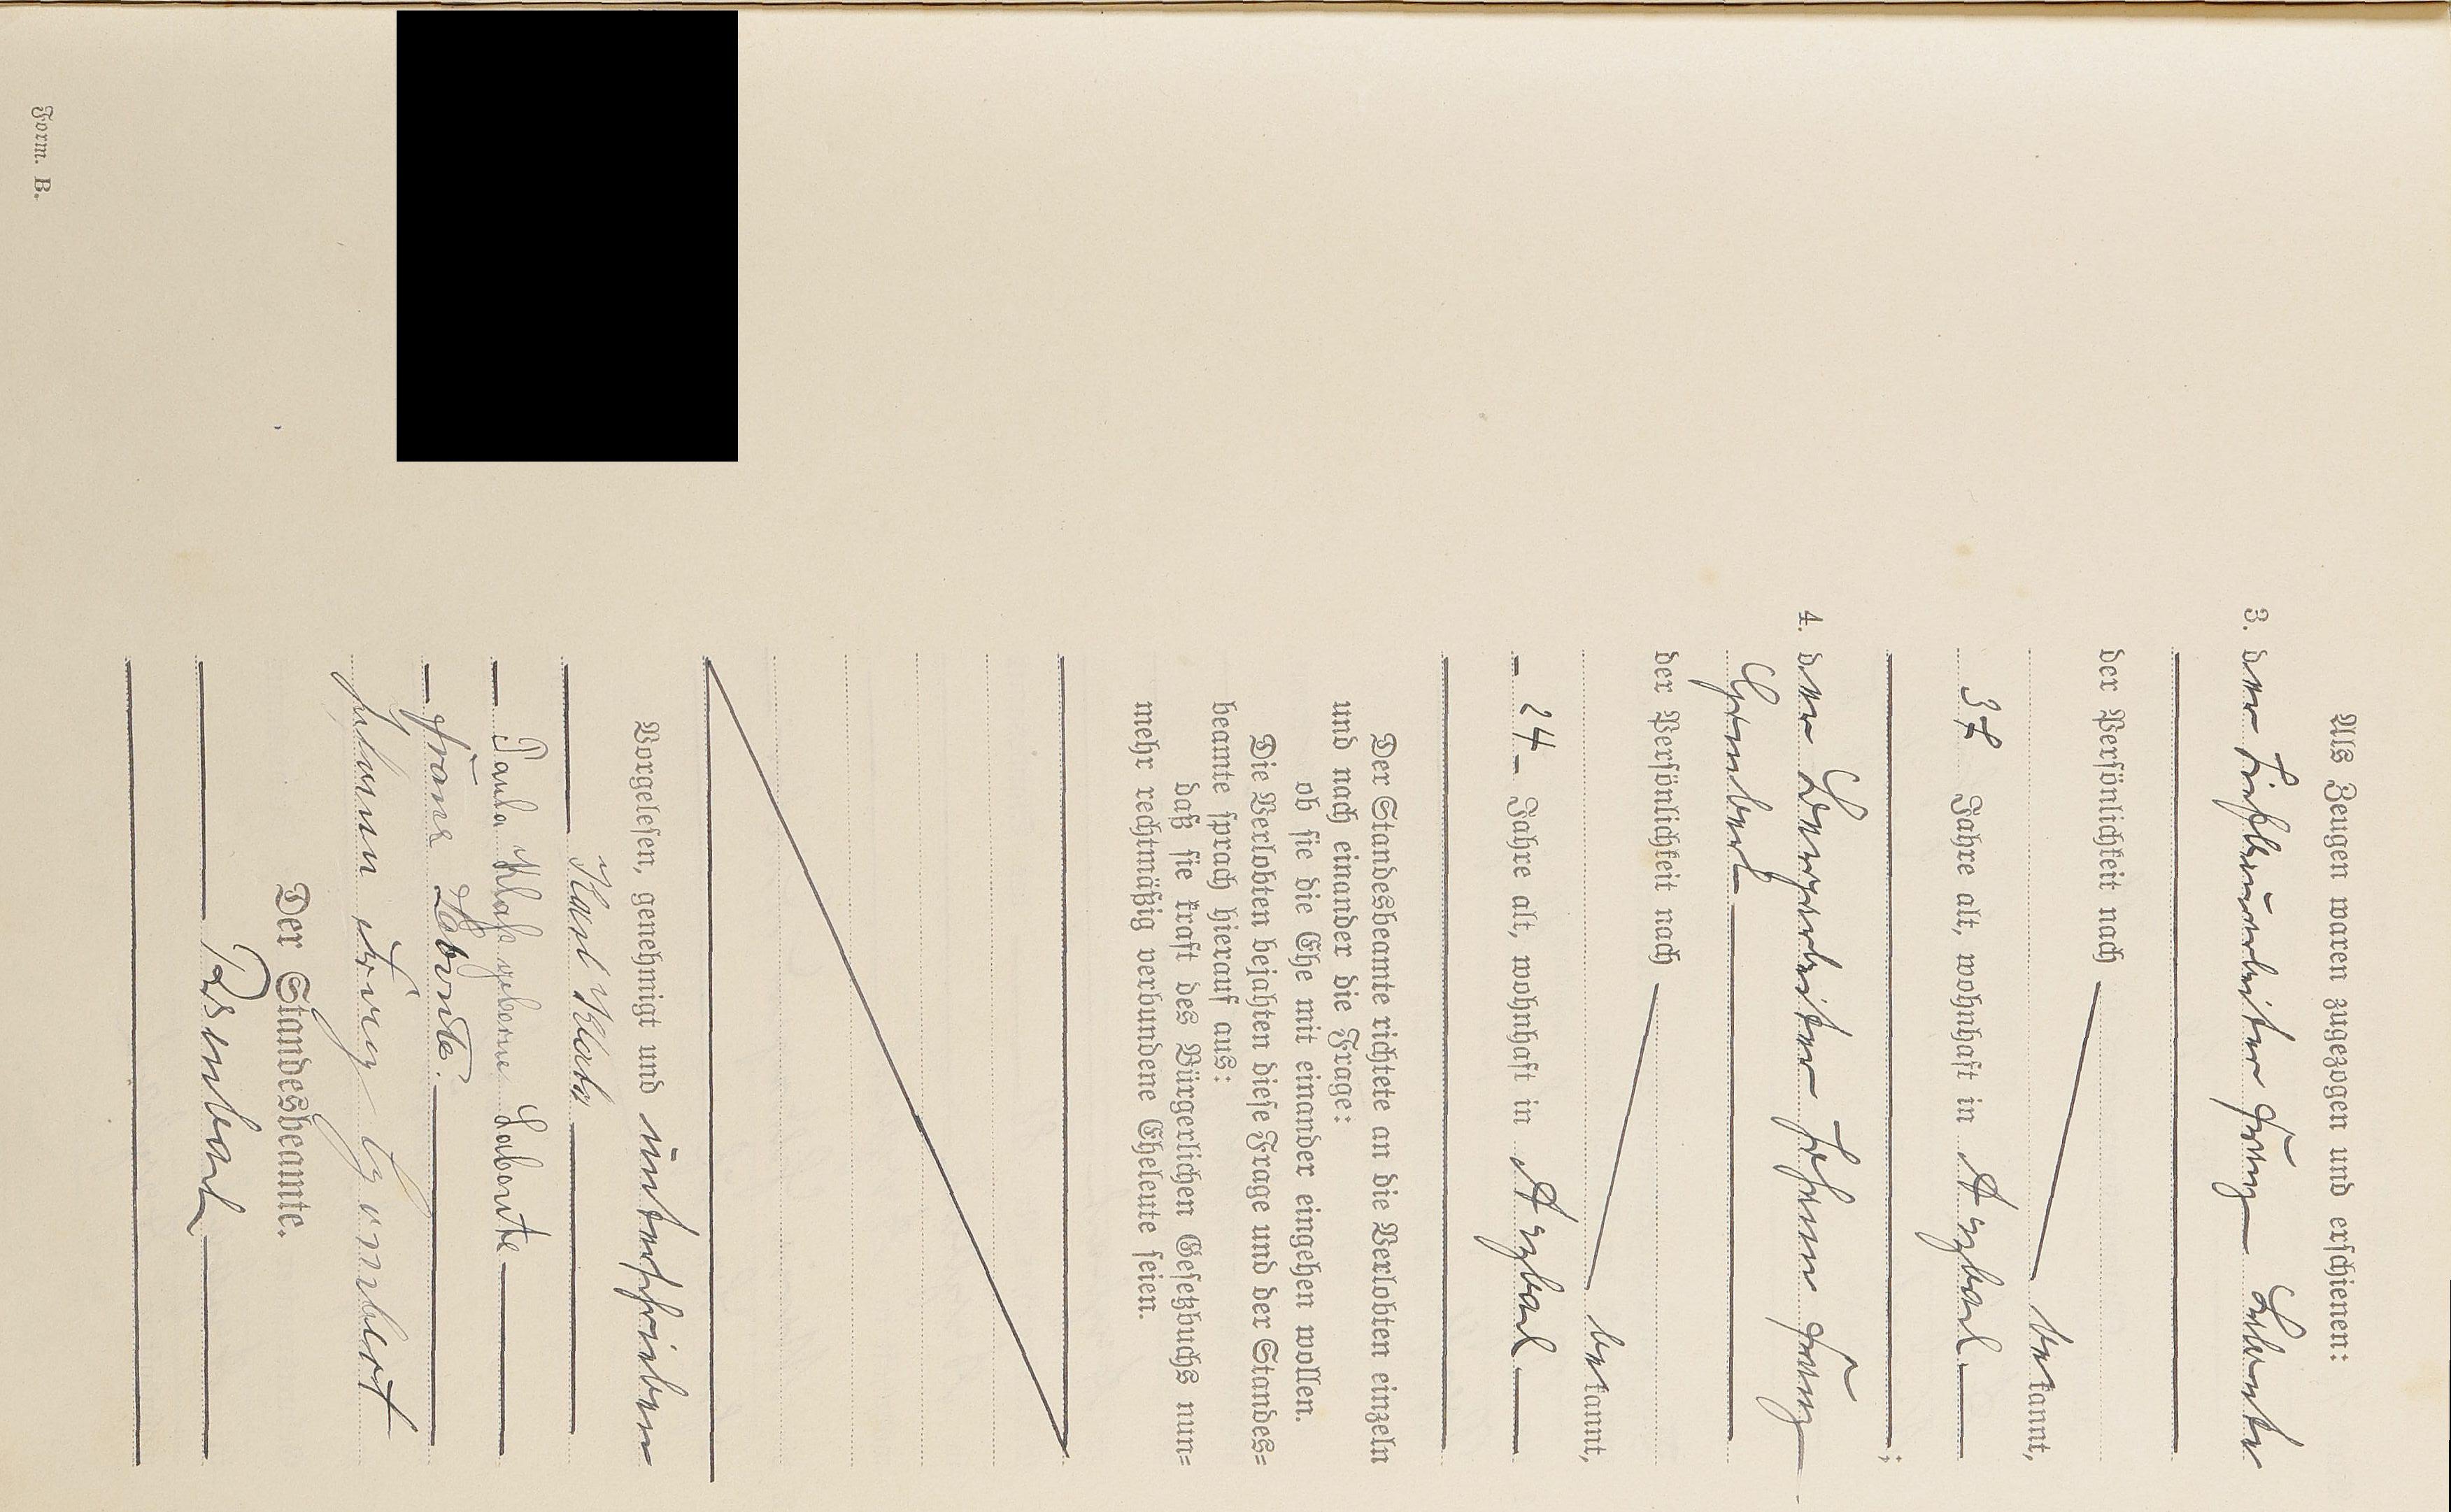 Als Zeugen waren zugezogen und erschienen:
3. der Tiefbauarbeiter Franz Labonte
der Persönlichkeit nach
bekannt,
37 Jahre alt, wohnhaft in
;
4. der Bergarbeiter Johann Franz
Gombert
der Persönlichkeit nach
bekannt,
24 Jahre alt, wohnhaft in
Der Standesbeamte richtete an die Verlobten einzeln
und nach einander die Frage:
ob sie die Ehe mit einander eingehen wollen.
Die Verlobten bejahten diese Frage und der Standes=
beamte sprach hierauf aus:
daß sie kraft des Bürgerlichen Gesetzbuchs nun=
mehr rechtmäßig verbundene Eheleute seien.
Vorgelesen, genehmigt und unterschrieben
Karl
Paula geborene Labonte
Franz Labonte.
Johann Franz Gombert
Der Standesbeamte.
Form. B.